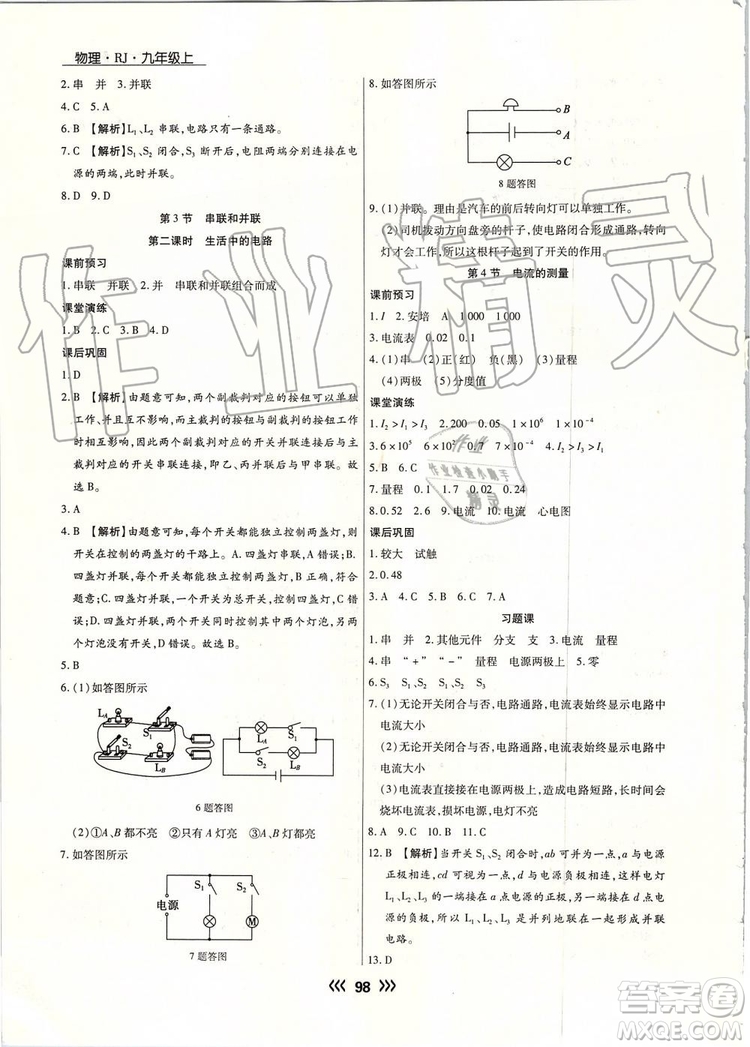 物理·RJ·九年级上
2. 串　并　3. 并联
4. C　5. A
6. B　【解析】L₁、L₂ 串联，电路只有一条通路。
7. C　【解析】S₁、S₂ 闭合，S₃ 断开后，电阻两端分别连接在电
源的两端，此时并联。
8. D　9. D
第 3 节　串联和并联
第二课时　生活中的电路
课前预习
1. 串联　并联　2. 并　串联和并联组合而成
课堂演练
1. B　2. C　3. B　4. B
课后巩固
1. D
2. B　【解析】由题意可知，两个副裁判对应的按钮可以单独
工作、并且互不影响，所以两个副裁判对应的开关并联；
由于相互影响，而主裁判的按钮与副裁判的按钮工作时
相互影响，因此主裁判对应的开关与两个并联的副裁
判对应的开关串联连接，即乙、丙并联后与甲串联。故
选 B。
3. A
4. B　【解析】由题意可知，每个开关都能独立控制两盏灯，则
开关在控制的两盏灯的干路上。A. 四盏灯串联，A 错误；
B. 四盏灯并联，每个开关都能独立控制两盏灯，B 正确；
C. 四盏灯并联，一个开关为干路开关，不能独立控制，C 错
误；D. 四盏灯并联，一个开关同时控制两个灯泡，另外两
个灯泡没有开关，D 错误。故选 B。
5. B
6. (1)如答图所示
L_A　S₁　S₂　L_B
L_A　S₁　S₂　L_B
6 题答图
(2)①A、B 都不亮　②只有 A 灯亮　③A、B 灯都亮
7. 如答图所示
电源　S₁　S₂　M
7 题答图
8. 如答图所示
B
A
C
8 题答图
9. (1)并联。理由是汽车的前后转向灯可以单独工作。
(2)司机拨动方向盘旁的杆子，使电路闭合形成通路，转向
灯才会工作，所以这根杆子起到了开关的作用。
第 4 节　电流的测量
课前预习
1. I　2. 安培　A　1 000　1 000
3. 电流表　0.02　0.1
4. (1)串　(2)正(红)　负(黑)　(3)量程
(4)两极　(5)分度值
课堂演练
1. I₂＞I₁＞I₃　2. 200　0.05　1×10⁶　1×10⁻⁴
3. 6×10⁵　6×10²　6×10⁻⁴　4. I₂＞I₁＞I₃
5. B　6. C
7. 量程　0.1　1.7　0.02　0.48
8. 0.52　0.6　9. 电流　10. 电流　心电图
课后巩固
1. 较大　试触
2. 0.48
3. A　4. C　5. A　6. D　7. C
习题课
1. 串　并　2. 其他元件　分支　支　3. 电流　量程
4. 串　“+”　“－”　量程　电源两极上　5. 零
6. S₃　S₁、S₂　S₂、S₃
7. (1)无论开关闭合与否，电路通路，电流表始终显示电路中
电流大小
(2)无论开关闭合与否，电路通路，电流表始终显示电路中
电流大小
(3)电流表直接接在电源两极上，造成电路短路，长时间会
烧坏电流表，损坏电源，电灯不亮
8. A　9. C　10. B　11. C
12. B　【解析】当开关 S₁、S₂ 闭合时，ab 可并为一点，a 与电源
正极相连，cd 可视为一点，d 与电源负极相连，两盏电灯
L₁、L₂ 正极相连接在 a 点电源的正极，负极连接在 d 点
电源的负极，所以 L₁、L₂ 是并列地在元间形成并联
电路。
13. D
98
作业精灵
答案圈
MXQE.COM